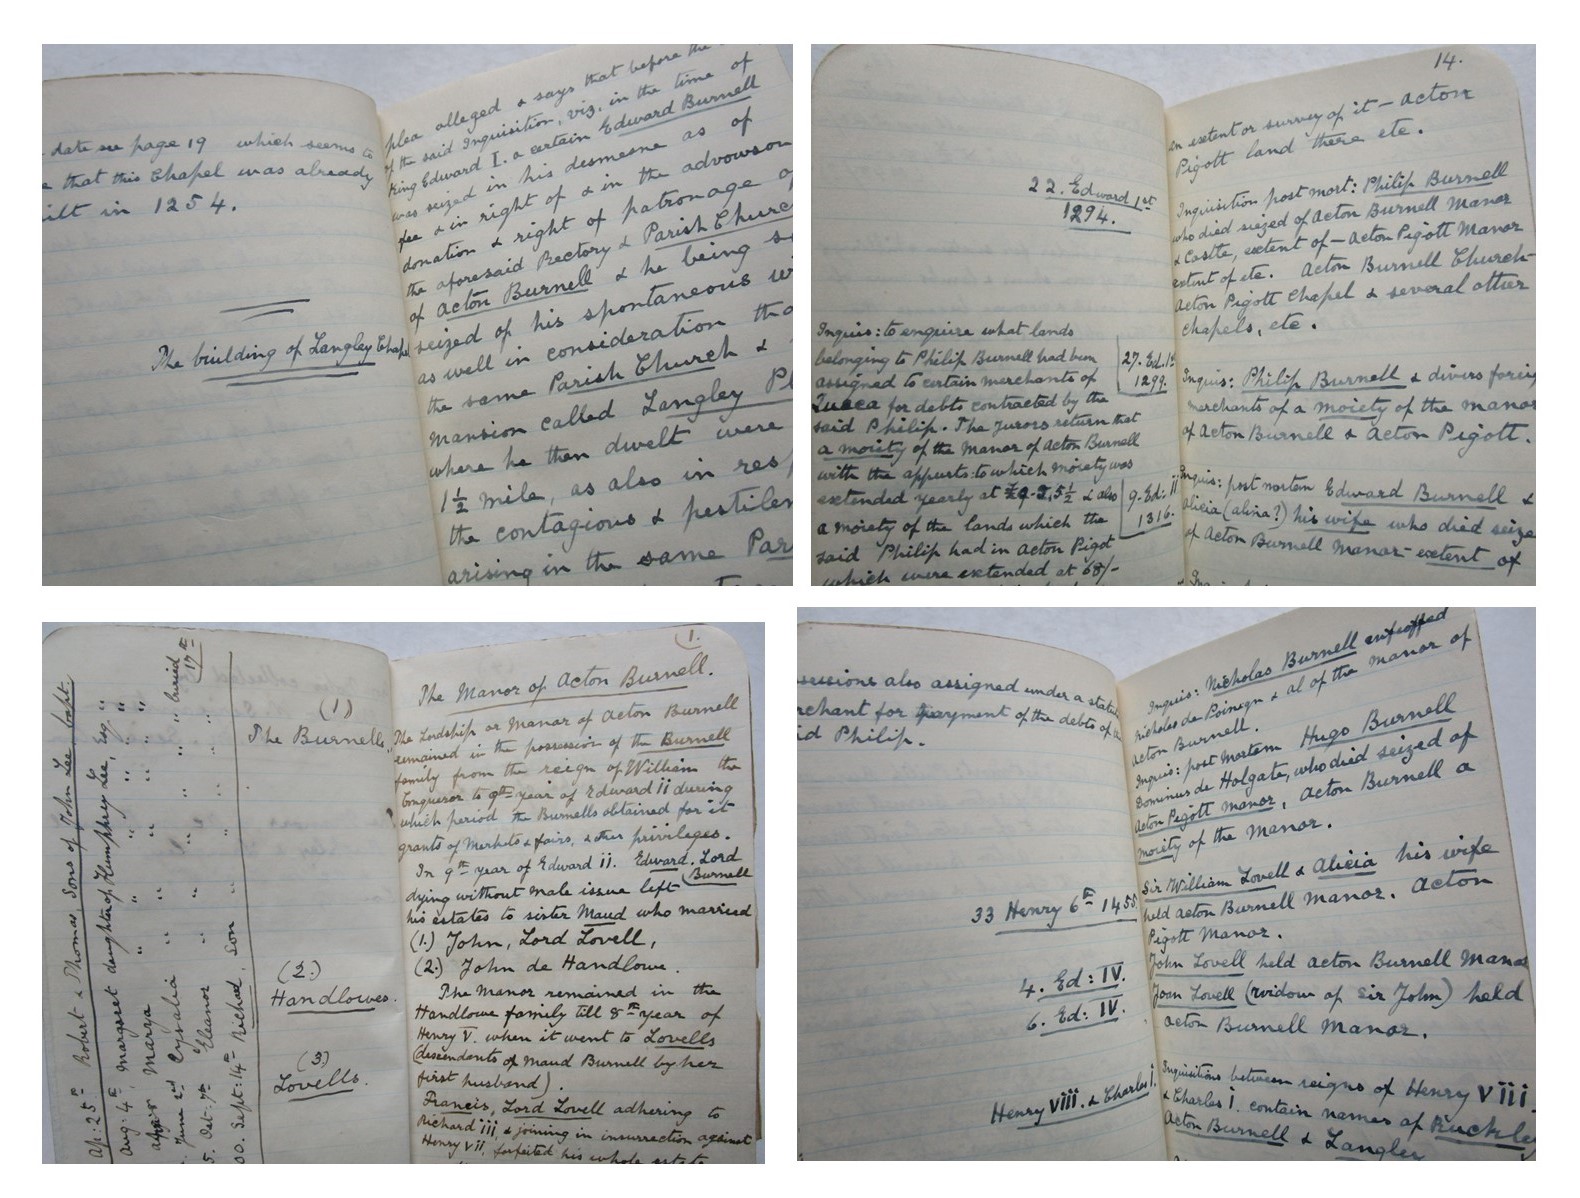 date see page 19 which seems to
that this Chapel was already
in 1254.
The building of Langley Chapel
plea alleged & says that before the
of the said Inquisition, viz. in the time of
King Edward I. a certain Edward Burnell
was seized in his desmesne as of
fee & in right of & in the advowson
donation & right of patronage of
the aforesaid Rectory & Parish Church
of Acton Burnell & he being so
seized of his spontaneous
as well in consideration
the same Parish Church &
mansion called Langley
where he then dwelt were
1½ mile, as also in
the contagious &
arising in the same
22. Edward 1st
1294.
Inquis: to enquire what lands
belonging to Philip Burnell had been
assigned to certain merchants of
Lucca for debts contracted by the
said Philip. The Jurors return that
a moiety of the Manor of Acton Burnell
with the appurts: to which moiety was
extended yearly at & also
a moiety of the lands which the
said Philip had in Acton Pigot
which were extended at 68/-
27. Ed. 1st
1299.
9. Ed: ii
1316.
14.
an extent or survey of it – Acton
Pigott land there etc.
Inquisition post mort: Philip Burnell
who died seized of Acton Burnell Manor
& Castle, extent of – Acton Pigott Manor
extent of etc. Acton Burnell Church –
Acton Pigott Chapel & several other
chapels, etc.
Inquis: Philip Burnell & divers foreign
merchants of a moiety of the manor
of Acton Burnell & Acton Pigott.
Inquis: post mortem Edward Burnell &
Alicia (alina?) his wife who died seized
of Acton Burnell Manor – extent of
Ap: 25th Robert & Thomas, Sons of John Lee, bapt.
Aug: 4th, Margaret daughter of Humphrey Lee, Esq. "
Marya " " " " "
June 2nd Cysalia " " " " buried 17th
5. Oct. 7th Eleanor " " " "
00. Sept: 14th Richard, Son "
(1)
The Burnells,
(2.)
Handlowes.
(3)
Lovells.
(1.
The Manor of Acton Burnell.
The Lordship or Manor of Acton Burnell
remained in the possession of the Burnell
family from the reign of William the
Conqueror to 9th year of Edward ii during
which period the Burnells obtained for it
grants of Markets & fairs, & other privileges.
In 9th year of Edward ii. Edward. Lord
Burnell
dying without male issue left
his estates to sister Maud who married
(1.) John, Lord Lovell,
(2.) John de Handlowe.
The Manor remained in the
Handlowe family till 8th year of
Henry V. when it went to Lovells
(descendents of Maud Burnell by her
first husband).
Francis, Lord Lovell adhering to
Richard iii, & joining in insurrection against
Henry vii, forfeited his whole estate
also assigned under a
for payment of the debts of
Philip.
33 Henry 6th 1455
4. Ed: IV.
6. Ed: IV.
Henry viii. & Charles I.
Inquis: Nicholas Burnell enfeoffed
Nicholas de Poinegn & al of the manor of
Acton Burnell.
Inquis: post mortem Hugo Burnell
Dominus de Holgate, who died seized of
Acton Pigott manor, Acton Burnell a
moiety of the Manor.
Sir William Lovell & Alicia his wife
held Acton Burnell Manor. Acton
Pigott Manor.
John Lovell held Acton Burnell Manor
Joan Lovell (widow of Sir John) held
Acton Burnell Manor.
Inquisitions between reigns of Henry viii.
& Charles I. contain names of Ruckley
Acton Burnell & Langley